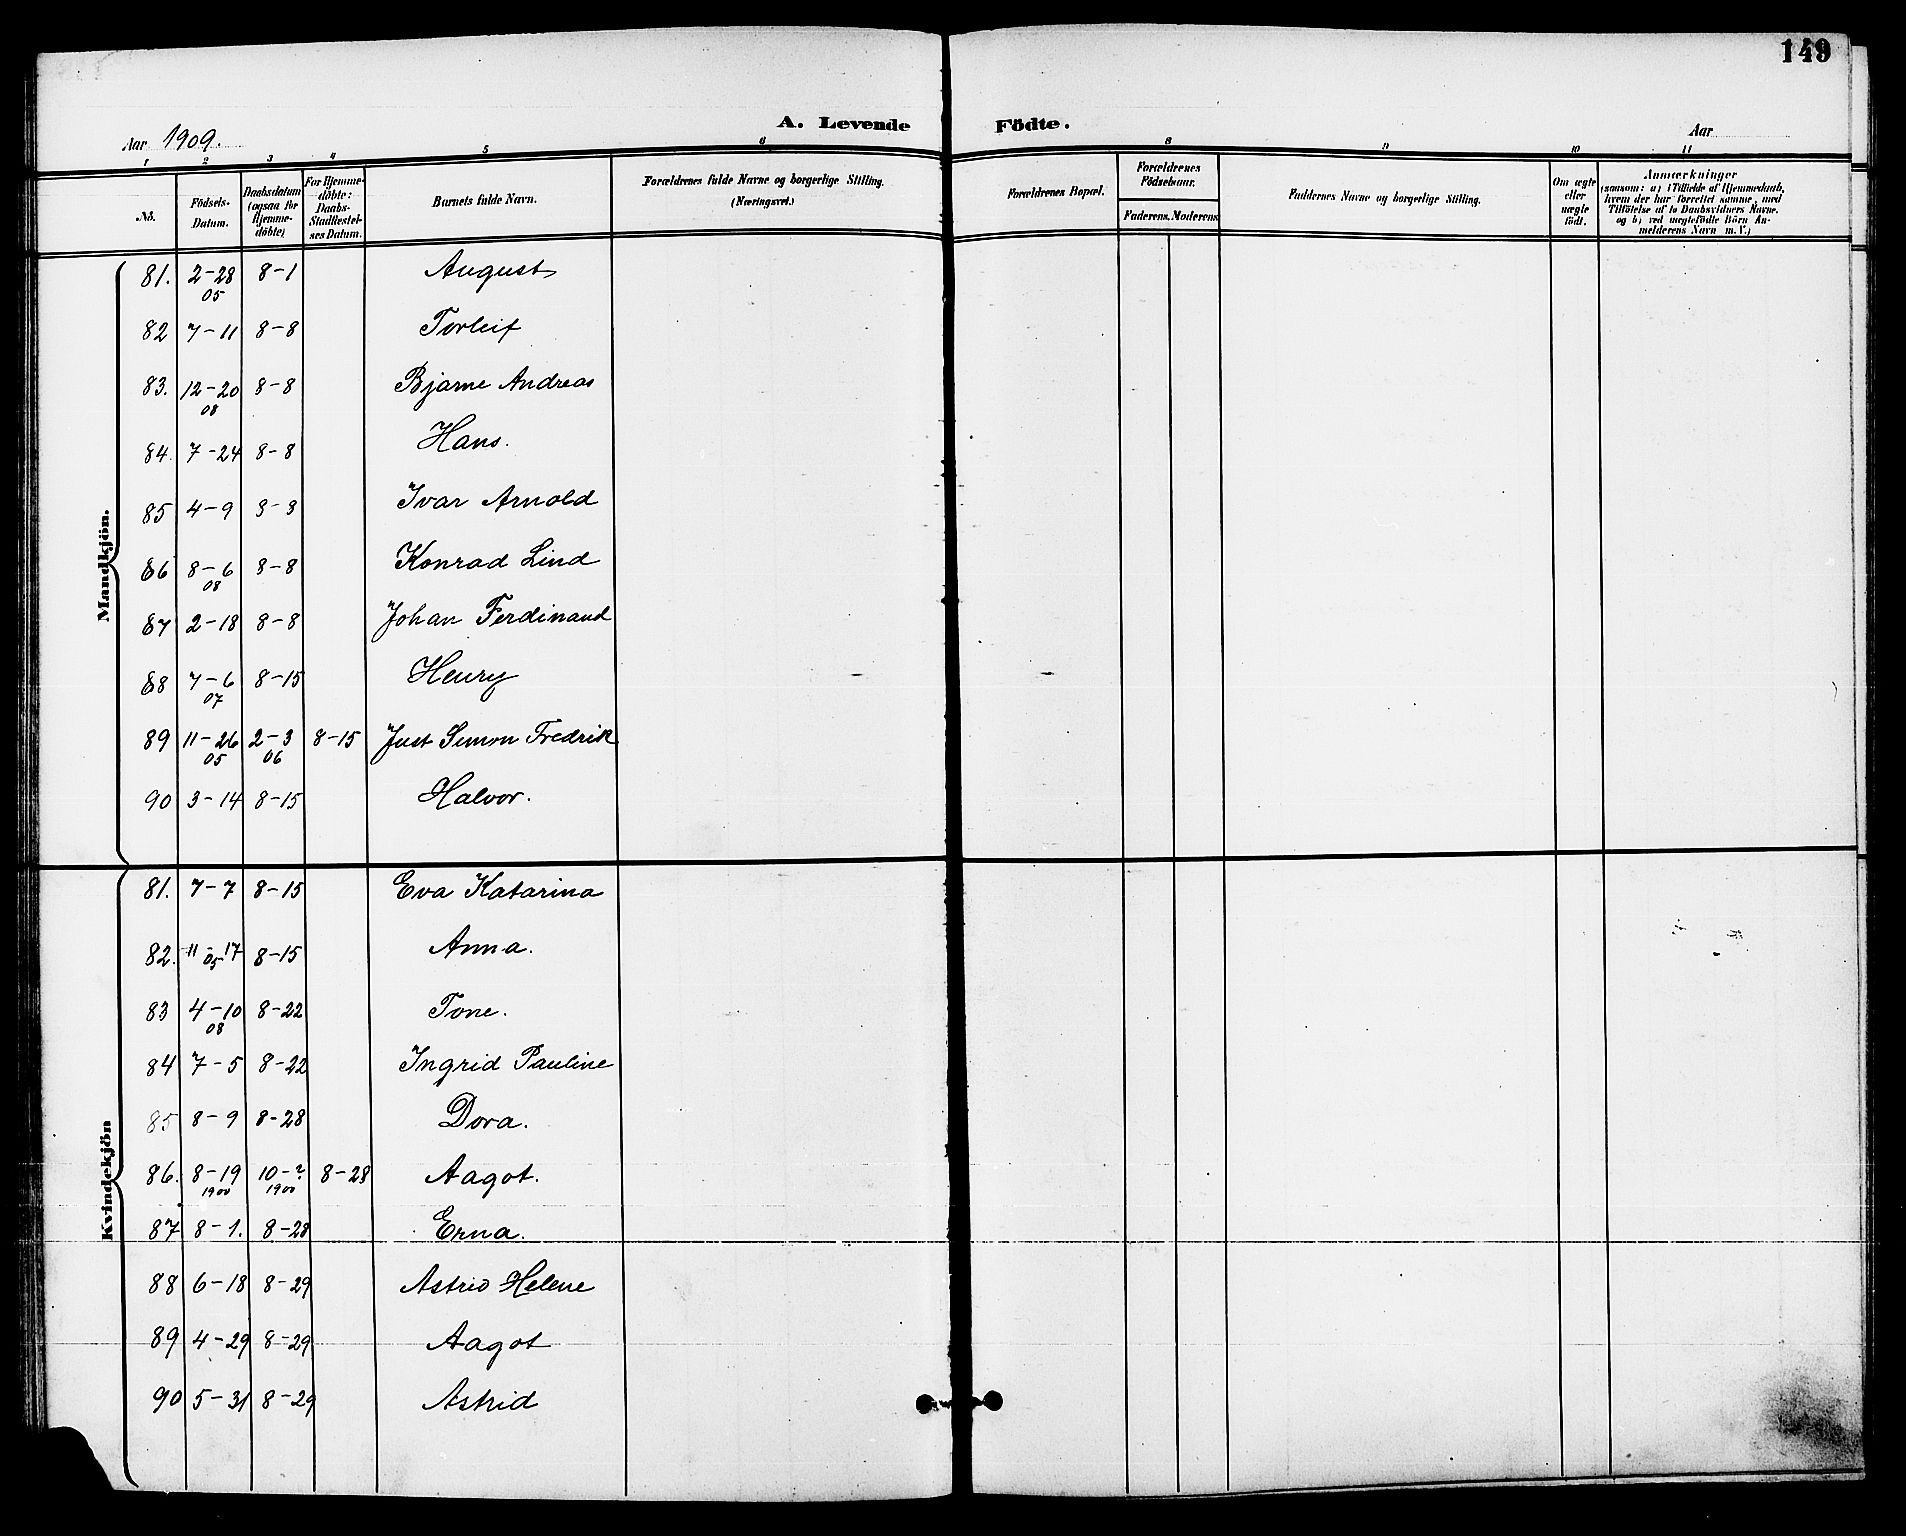 149
A. Levende Födte.
Aar 1909. Aar
1 2 3 4 5 6 8 9 10 11
No.
Födsels-Datum.
Daabsdatum (ogsaa for Hjemme-döbte)
For Hjemme-döbte: Daabs-Stadfæstel-ses Datum.
Barnets fulde Navn.
Forældrenes fulde Navne og borgerlige Stilling. (Næringsvei.)
Forældrenes Bopæl.
Forældrenes Födselsaar.
Faderens. Moderens
Faddernes Navne og borgerlige Stilling.
Om ægte eller uægte födt.
Anmærkninger
(saasom: a) i Tilfælde af Hjemmedaab,
hvem der har forrettet samme, med
Tilföielse af to Daabsvidners Navne,
og b) ved uægtefödte Börn An-
melderens Navn m. V.)
Mandkjön.
81. 2-28 05 8-1 August
82 7-11 8-8 Torleif
83. 12-20 08 8-8 Bjarne Andreas
84. 7-24 8-8 Hans.
85 4-9 8-8 Ivar Arnold
86 8-6 08 8-8 Konrad Lind
87 2-18 8-8 Johan Ferdinand
88 7-6 07 8-15 Henry
89 11-26 05 2-3 06 8-15 Just Simon Fredrik
90 3-14 8-15 Halvor.
Kvindekjön
81. 7-7 8-15 Eva Katarina
82. 11-17 05 8-15 Anna.
83 4-10 08 8-22 Tone.
84 7-5 8-22 Ingrid Pauline
85 8-9 8-28 Dora.
86. 8-19 1900 10-? 1900 8-28 Aagot.
87 8-1. 8-28 Erna.
88 6-18 8-29 Astrid Helene
89 4-29 8-29 Aagot
90 5-31 8-29 Astrid